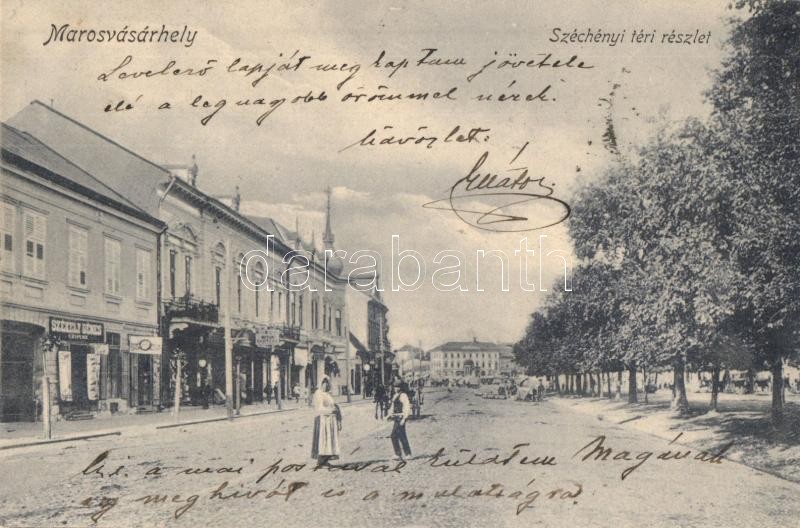 Marosvásárhely
Széchényi téri részlet
Levelező lapját meg kaptam jövetele
elé a legnagyobb örömmel nézek.
Üdvözlet:
darabanth
SZÉKELY
a mai postával küldtem Magának
egy meghivót is a mulatságra